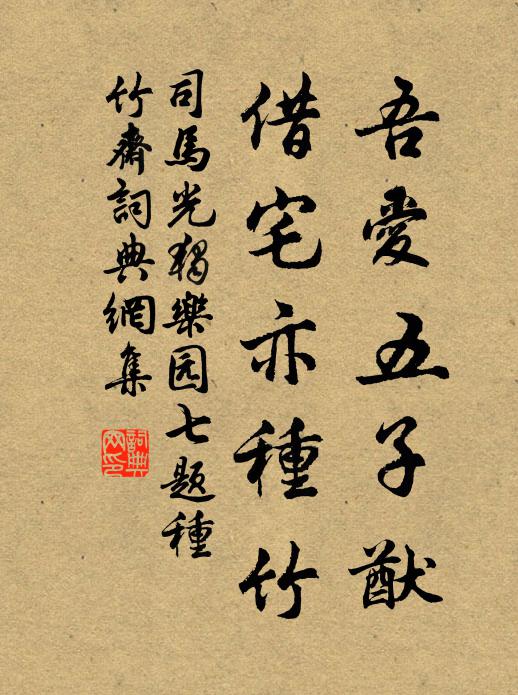 吾愛五子猷
借宅亦種竹
司馬光獨樂园七题種
竹齋詞典網集
詞典网印